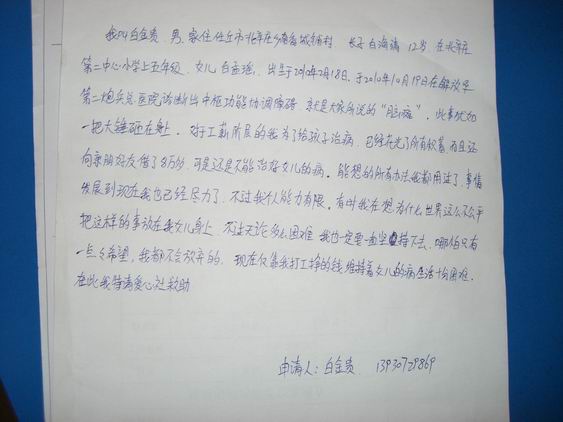 我叫白金贵，男，家住任丘市北辛庄乡南畬城铺村，长子白海涛 12岁 在北辛庄
第二中心小学上五年级，女儿白孟瑶，出生于2010年2月18日，于2010年10月19日在解放军
第二炮兵总医院诊断出中枢功能协调障碍，就是大家所说的“脑瘫”，此事犹如
一把大锤砸在身上，对工薪阶层的我为了给孩子治病，已经花光了所有积蓄，而且还
向亲朋好友借了8万多，可是还是不能治好女儿的病。能想的所有办法我都用过了，事情
发展到现在我也已经尽力了，不过我个人能力有限。有时我在想为什么世界这么不公平
把这样的事放在我女儿身上，不过无论多么困难 我也一定要一直坚持下去，哪怕只有
一点点希望，我都不会放弃的，现在仅靠我打工挣的钱维持着女儿的病生活十分困难。
在此我特请爱心社救助
申请人：白金贵 13930729869